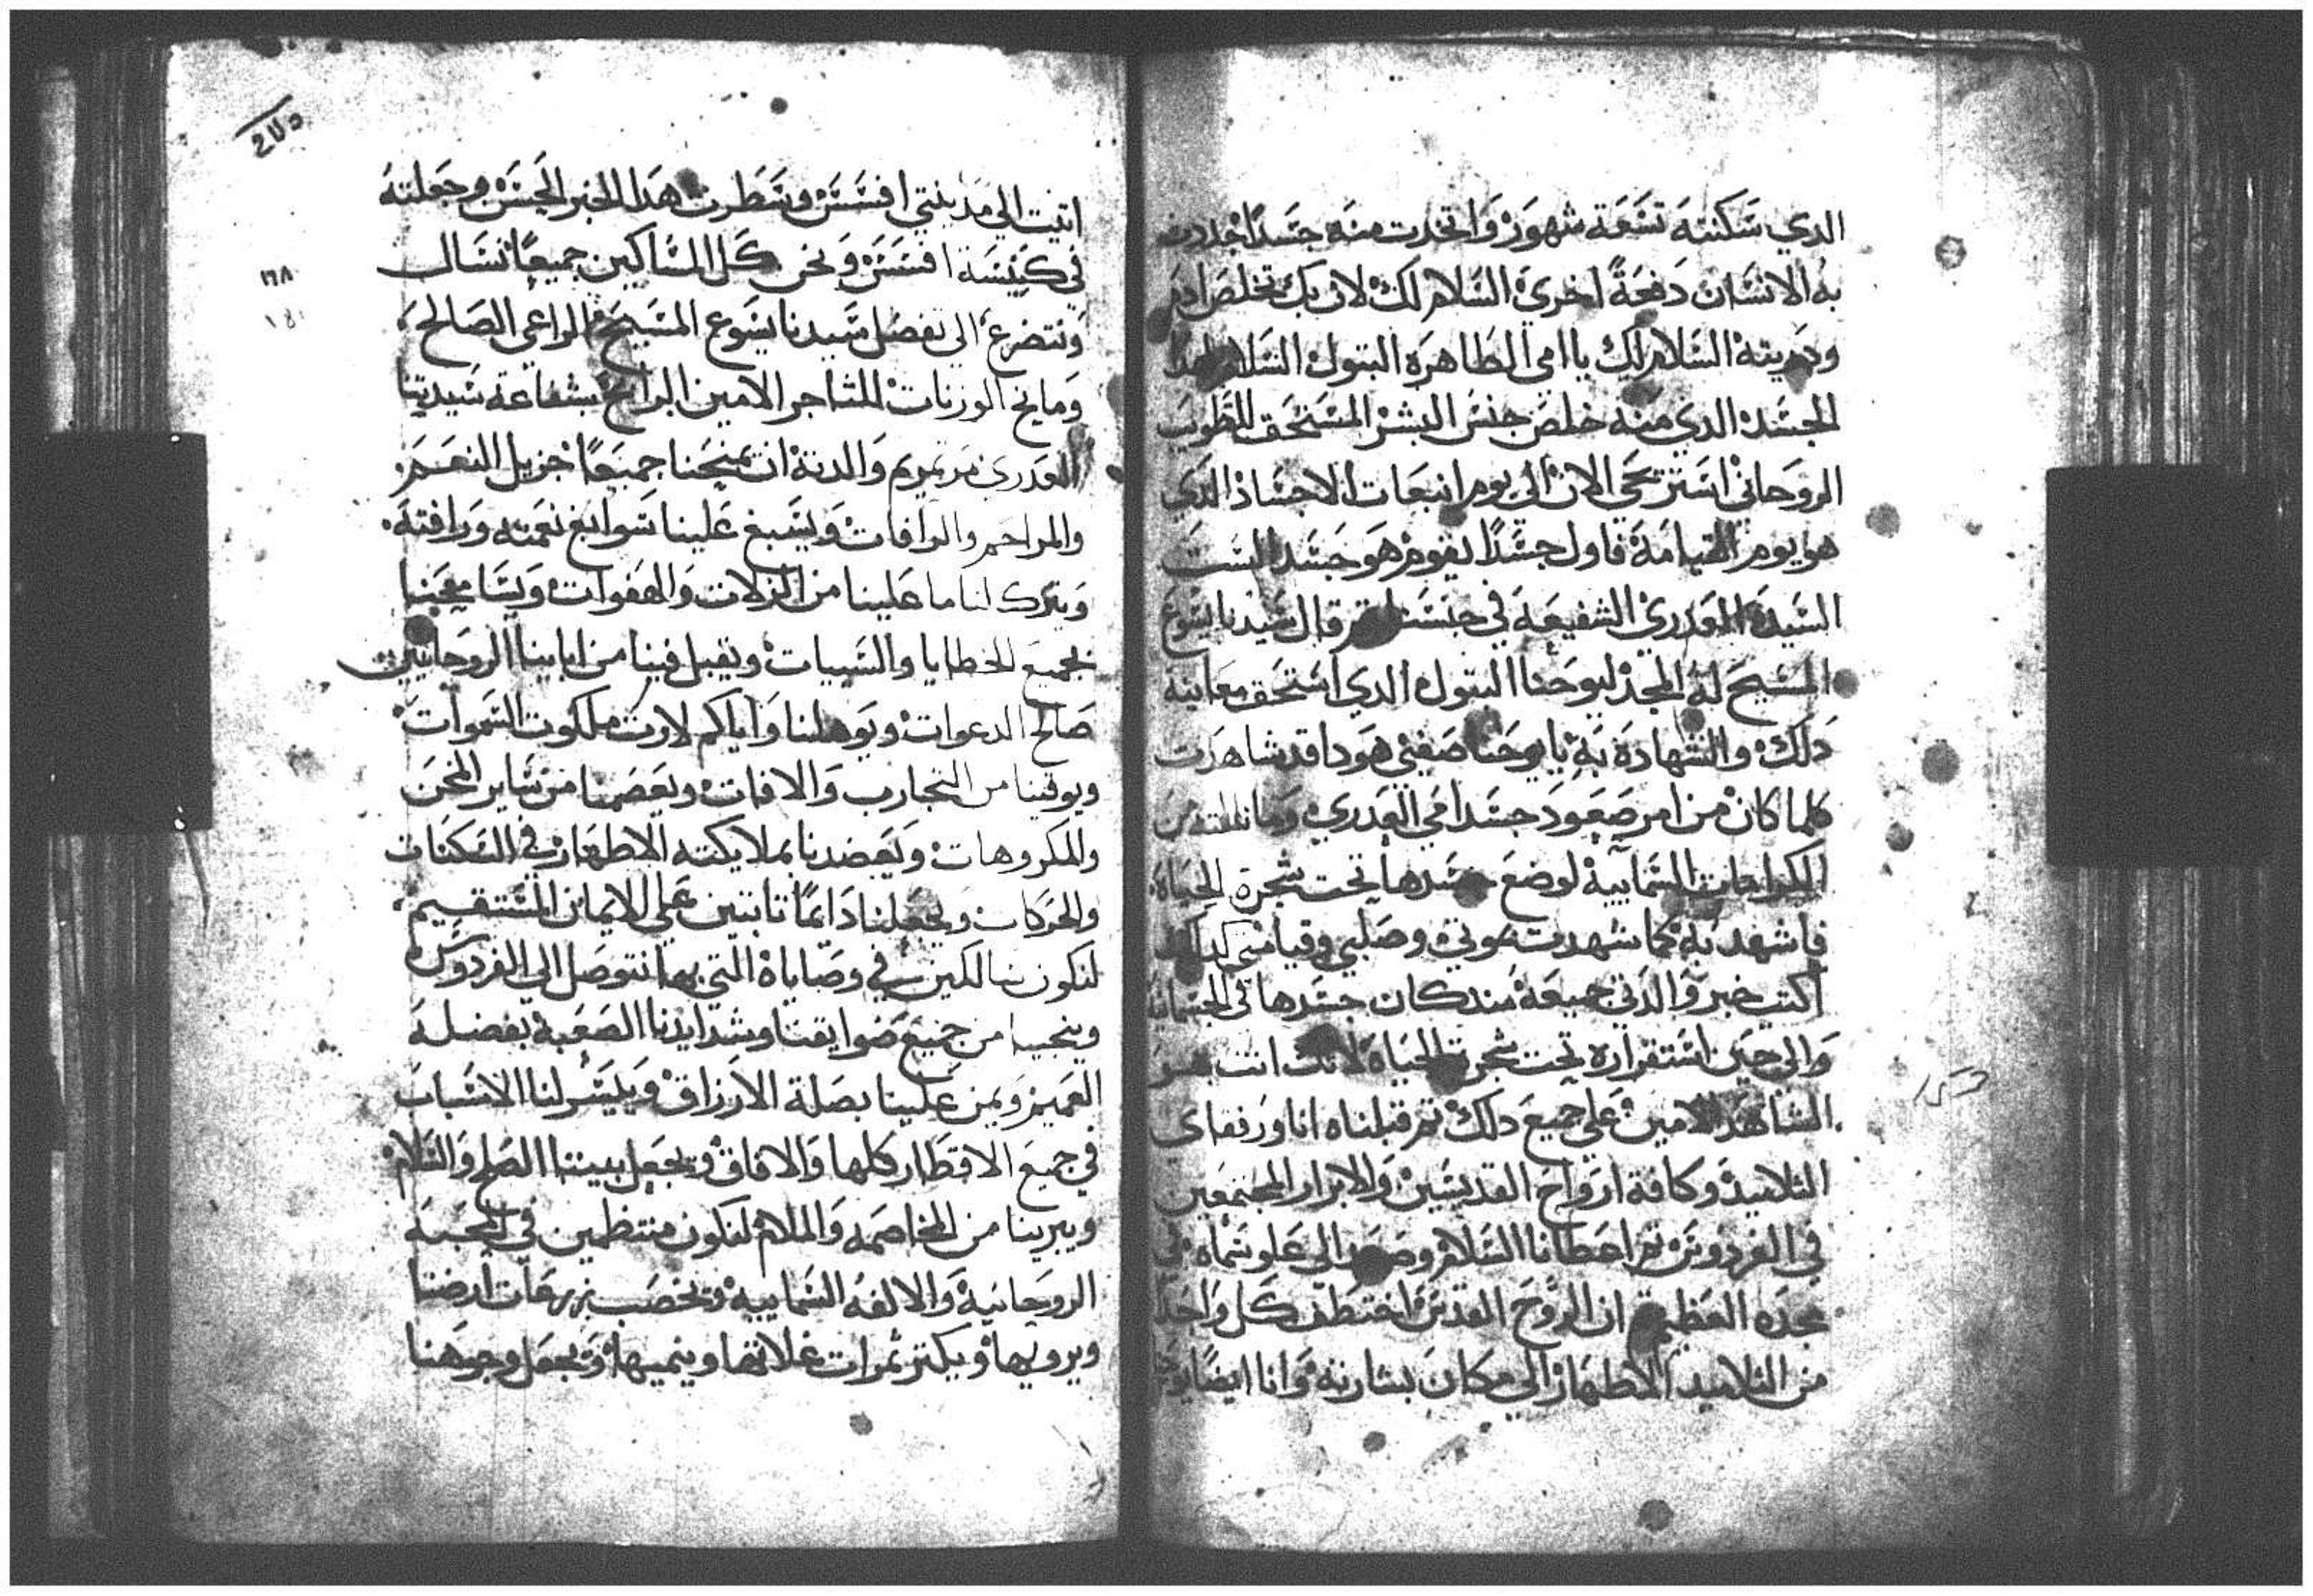 الدي سكنته تسعة شهور واتخدت منه جسدا جددت
به الانسان دفعة اخري السلام لك لان بك تخلص ادم
ودريته السلام لك ياامي الطاهره البتول السلام لهدا
الجسد الدي منه خلص جنس البشر المستحق الطوبي
الروحاني استرتحي الان الي يوم انبعات الاجساد الدي
هو يوم القيامة فاول جسدا يقوم هو جسد الست
السيدة العدري الشفيعه في جنسنا تم قال سيدنا يسوع
المسيح له المجد ليوحنا البتول الدي استحق معاينة
دلك والشهادة به يا يوحنا صفيي هودا قد شاهدت
كلما كان من امر صعود جسد امي العدري وما نالته من
الكرامات السماييه لوضع جسدها تحت شجرة الحياه
فاشهد به كما شهدت موتي وصلبي وقيامتي كدلك
اكتب خبر والدتي جميعه مند كان جسدها في الجسمانيه
والي حين استقراره تحت شجرة الحياه لانك انت هو
الشاهد الامين علي جميع دلك تم قبلناه انا ورفقاي
التلاميد وكافة ارواح القديسين والابرار المجتمعين
في الفردوس تم اعطانا السلام وصعد الي علو سماه في
مجده العظيم ان الروح القدس اختطف كل واحدا
من التلاميد الاطهار الي مكان بشارته وانا ايضا يوحنا
2Vo
اتيت الي مدينتي افسس وسطرت هدا الخبر الحسن وجعلته
في كنيسة افسس ونحن كل المساكين جميعا نسال
١٦٨
ونتضرع الي تفضل سيدنا يسوع المسيح الراعي الصالح
ومانح الوزنات للتاجر الامين الرابح بشفاعة سيدتنا
العدري مرتمريم والدته ان يمنحنا جميعا جزيل النعم
والمراحم والرافات ويسبغ علينا سوابغ نعمته ورافته
ويترك لنا ما علينا من الزلات والهفوات ويسامحنا
بجميع الخطايا والسييات ويقبل فينا من ابايينا الروحانيين
صالح الدعوات ويوهلنا واياكم لارت ملكوت السموات
ويوقينا من التجارب والافات ويعصمنا من ساير المحن
والمكروهات ويعضدنا بملايكته الاطهار في السكنات
والحركات ويجعلنا دايما تابتين علي الايمان المستقيم
لنكون سالكين في وصاياه التي بها نتوصل الي الفردوس
وينجينا من جميع ضوايقنا وشدايدنا الصعبة بفضله
العميم ويمن علينا بصلة الارزاق وييسر لنا الاسباب
في جميع الاقطار كلها والافاق ويجعل بيننا الصلح والسلام
ويبرينا من المخاصمه والملام لنكون منتظمين في المحبه
الروحانية والالفه السماييه وتخصب بزرعات ارضنا
ويرويها ويكتر ثمرات غلاتها وينميها ويجعل وجوهنا